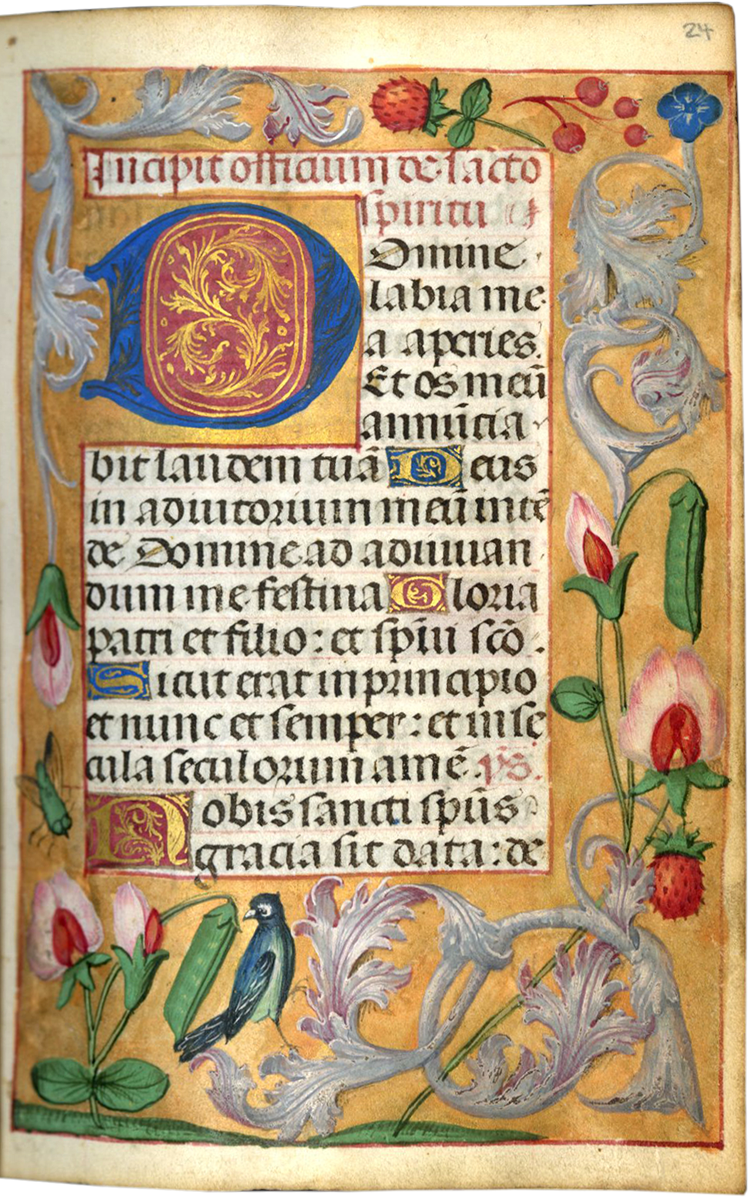 24
Incipit officium de sācto
spiritu
Domine
labia me
a aperies.
Et os meū
annūcia
bit laudem tuā Deus
in adiutorium meū intē
de Domine ad adiuuan
dum me festina Gloria
patri et filio: et spīui scō.
Sicut erat in principio
et nunc et semper: et in se
cula seculorum amē. p̄s.
Nobis sancti spūs
gracia sit data: de